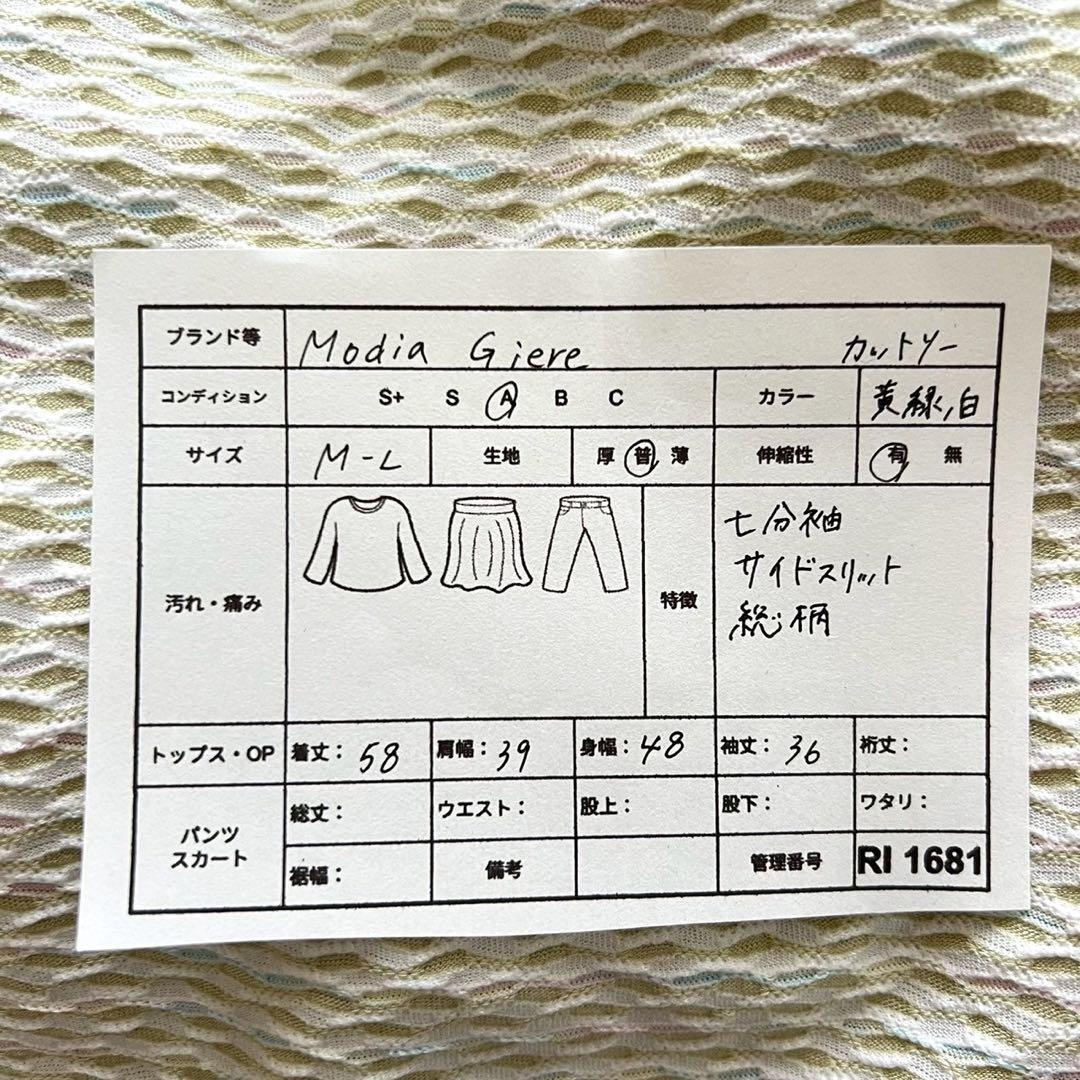 ブランド等 Modia Giere カットソー
コンディション S+ S A B C カラー 黄緑、白
サイズ M-L 生地 厚 普 薄 伸縮性 有 無
汚れ・痛み 特徴 七分袖
サイドスリット
総柄
トップス・OP 着丈：58 肩幅：39 身幅：48 袖丈：36 裄丈：
パンツ
スカート
総丈： ウエスト： 股上： 股下： ワタリ：
裾幅： 備考 管理番号 RI 1681